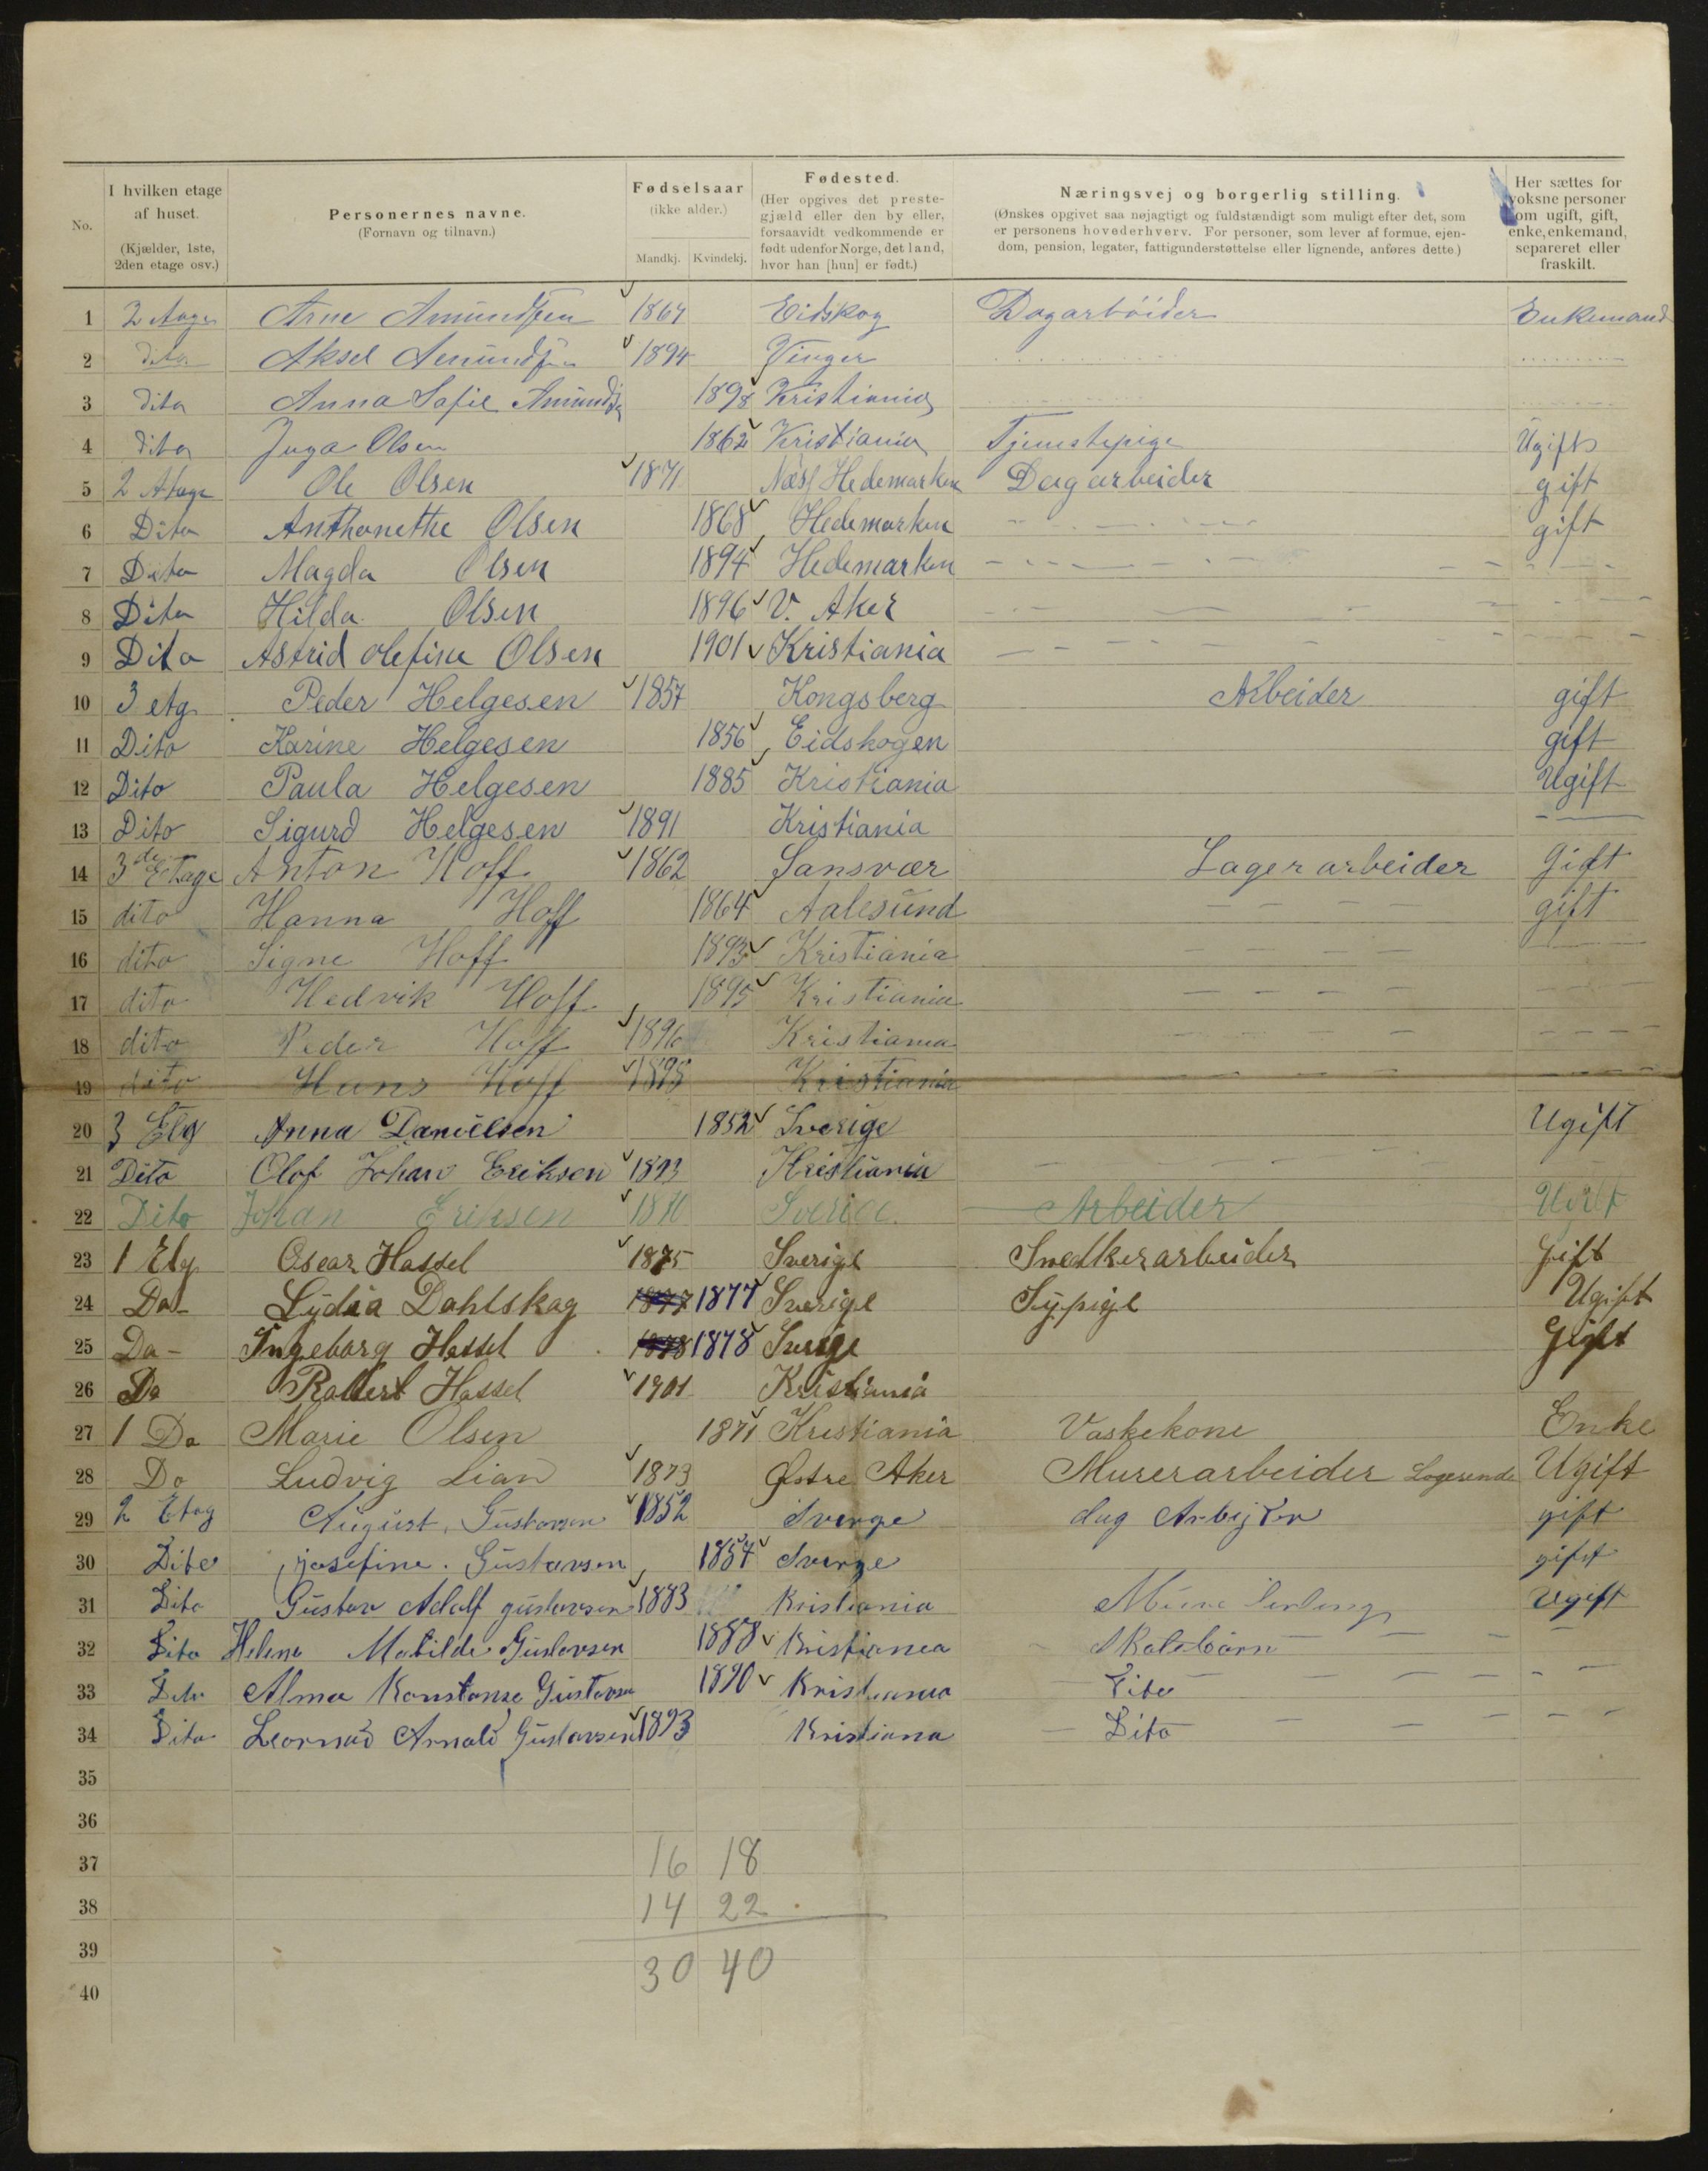 No.
I hvilken etage af huset.
(Kjælder, 1ste, 2den etage osv.)
Personernes navne.
(Fornavn og tilnavn.)
Fødselsaar
(ikke alder.)
Mandkj. Kvindekj.
Fødested.
(Her opgives det prestegjæld eller den by eller, forsaavidt vedkommende er født udenfor Norge, det land, hvor han [hun] er født.)
Næringsvej og borgerlig stilling.
(Ønskes opgivet saa nøjagtigt og fuldstændigt som muligt efter det, som er personens hovederhverv. For personer, som lever af formue, ejendom, pension, legater, fattigunderstøttelse eller lignende, anføres dette.)
Her sættes for voksne personer om ugift, gift, enke, enkemand, separeret eller fraskilt.
1 2 Arne Amundsen 1867 Eidskog Dagarböider Enkemand
2 dito Aksel Amundsen 1894 Vinger
3 dito Anna Sofie Amundsen 1898 Kristiania
4 dito Inga Olsen 1862 Kristiania Tjenestepige Ugift
5 2 Ole Olsen 1871 Næs Hedemarken Dagarbeider gift
6 Dito Anthonethe Olsen 1868 Hedemarken gift
7 Dito Magda Olsen 1894 Hedemarken
8 Dito Hilda Olsen 1896 V. Aker
9 Dito Astrid olefine Olsen 1901 Kristiania
10 3 etg. Peder Helgesen 1857 Kongsberg Arbeider gift
11 Dito Karine Helgesen 1856 Eidskogen gift
12 Dito Paula Helgesen 1885 Kristiania Ugift
13 Dito Sigurd Helgesen 1891 Kristiania
14 3de Etage Anton Hoff 1862 Sansvær Lagerarbeider Gift
15 dito Hanna Hoff 1864 Aalesund gift
16 dito Signe Hoff 1893 Kristiania
17 dito Hedvik Hoff 1895 Kristiania
18 dito Peder Hoff 1896 Kristiania
19 dito Hans Hoff 1898 Kristiania
20 3 Etg Anna Danielsen 1852 Sverige Ugift
21 Dito Olof Johan Eriksen 1893 Kristiania
22 Dito Johan Eriksen Sverige Arbeider Ugift
23 1 Etg Oscar Hassel 1875 Sverige Snedkerarbeider Gift
24 Do - Lydia Dahlskag 1877 1877 Sverige Sypige Ugift
25 Do - Ingeborg Hassel 1878 1878 Sverige Gift
26 Do Robert Hassel 1901 Kristiania
27 1 Do Marie Olsen 1871 Kristiania Vaskekone Enke
28 Do Ludvig Lian 1873 Østre Aker Murerarbeider Logerende Ugift
29 2 Etag August Gustavsen 1852 Sverge dag Arbejder gift
30 Dito josefine. Gustavsen 1857 Sverge gift
31 Dito Gustav Adolf gustavsen 1883 Kristiania Ugift
32 Dito Helene Matilde Gustavsen 1888 Kristiania Skolebarn
33 Dito Alma Konstanse Gustavsen 1890 Kristiania Dito
34 Dito Leornad Arnald Gustavsen 1893 Kristiana Dito
35
36
37 16 18
38 14 22
39
40 30 40